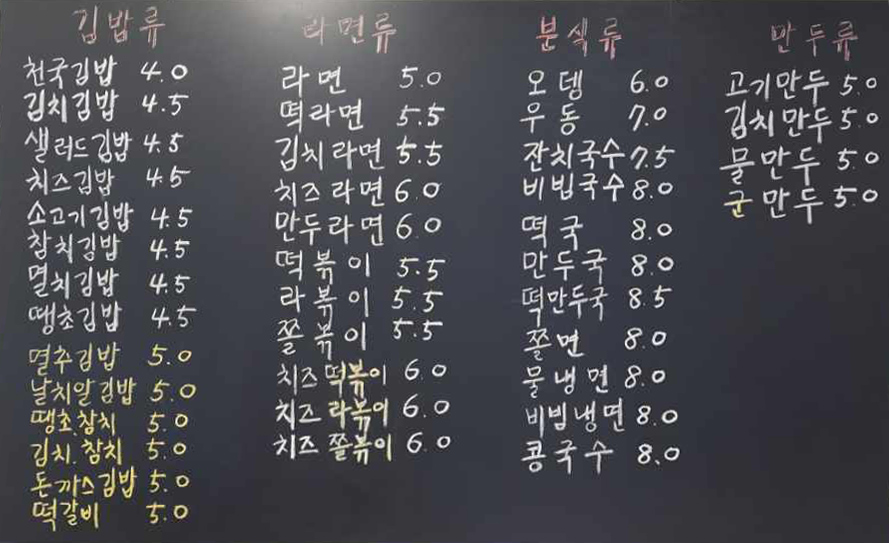 김밥류
천국김밥 4.0
김치김밥 4.5
샐러드김밥 4.5
치즈김밥 4.5
소고기김밥 4.5
참치김밥 4.5
멸치김밥 4.5
땡초김밥 4.5
멸추김밥 5.0
날치알김밥 5.0
땡초.참치 5.0
김치.참치 5.0
돈까스김밥 5.0
떡갈비 5.0
라면류
라면 5.0
떡라면 5.5
김치라면 5.5
치즈라면 6.0
만두라면 6.0
떡볶이 5.5
라볶이 5.5
쫄볶이 5.5
치즈떡볶이 6.0
치즈라볶이 6.0
치즈쫄볶이 6.0
분식류
오뎅 6.0
우동 7.0
잔치국수 7.5
비빔국수 8.0
떡국 8.0
만두국 8.0
떡만두국 8.5
쫄면 8.0
물냉면 8.0
비빔냉면 8.0
콩국수 8.0
만두류
고기만두 5.0
김치만두 5.0
물만두 5.0
군만두 5.0